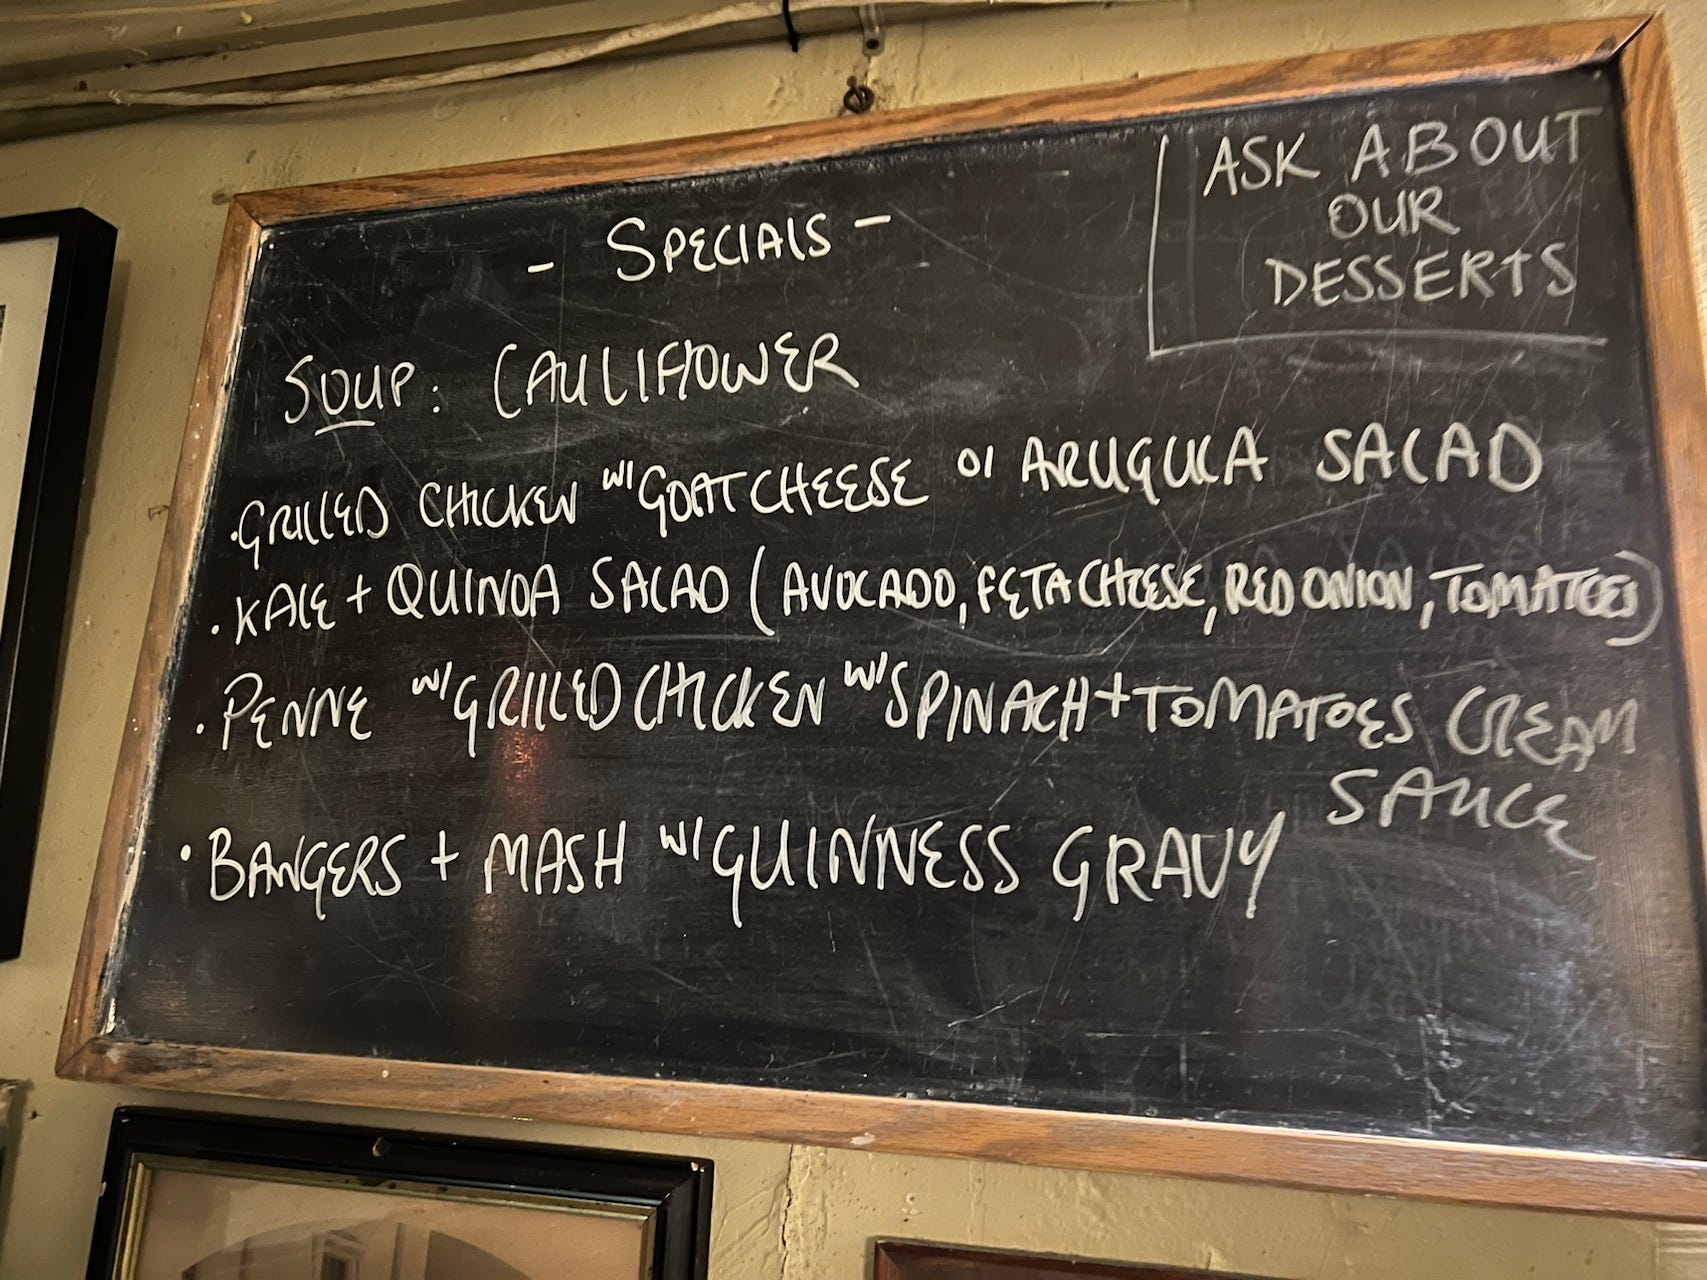 - SPECIALS -
ASK ABOUT
OUR
DESSERTS
SOUP: CAULIFLOWER
• GRILLED CHICKEN w/ GOAT CHEESE o/ ARUGULA SALAD
• KALE + QUINOA SALAD (AVOCADO, FETA CHEESE, RED ONION, TOMATOES)
• PENNE w/ GRILLED CHICKEN w/ SPINACH + TOMATOES CREAM
SAUCE
• BANGERS + MASH w/ GUINNESS GRAVY